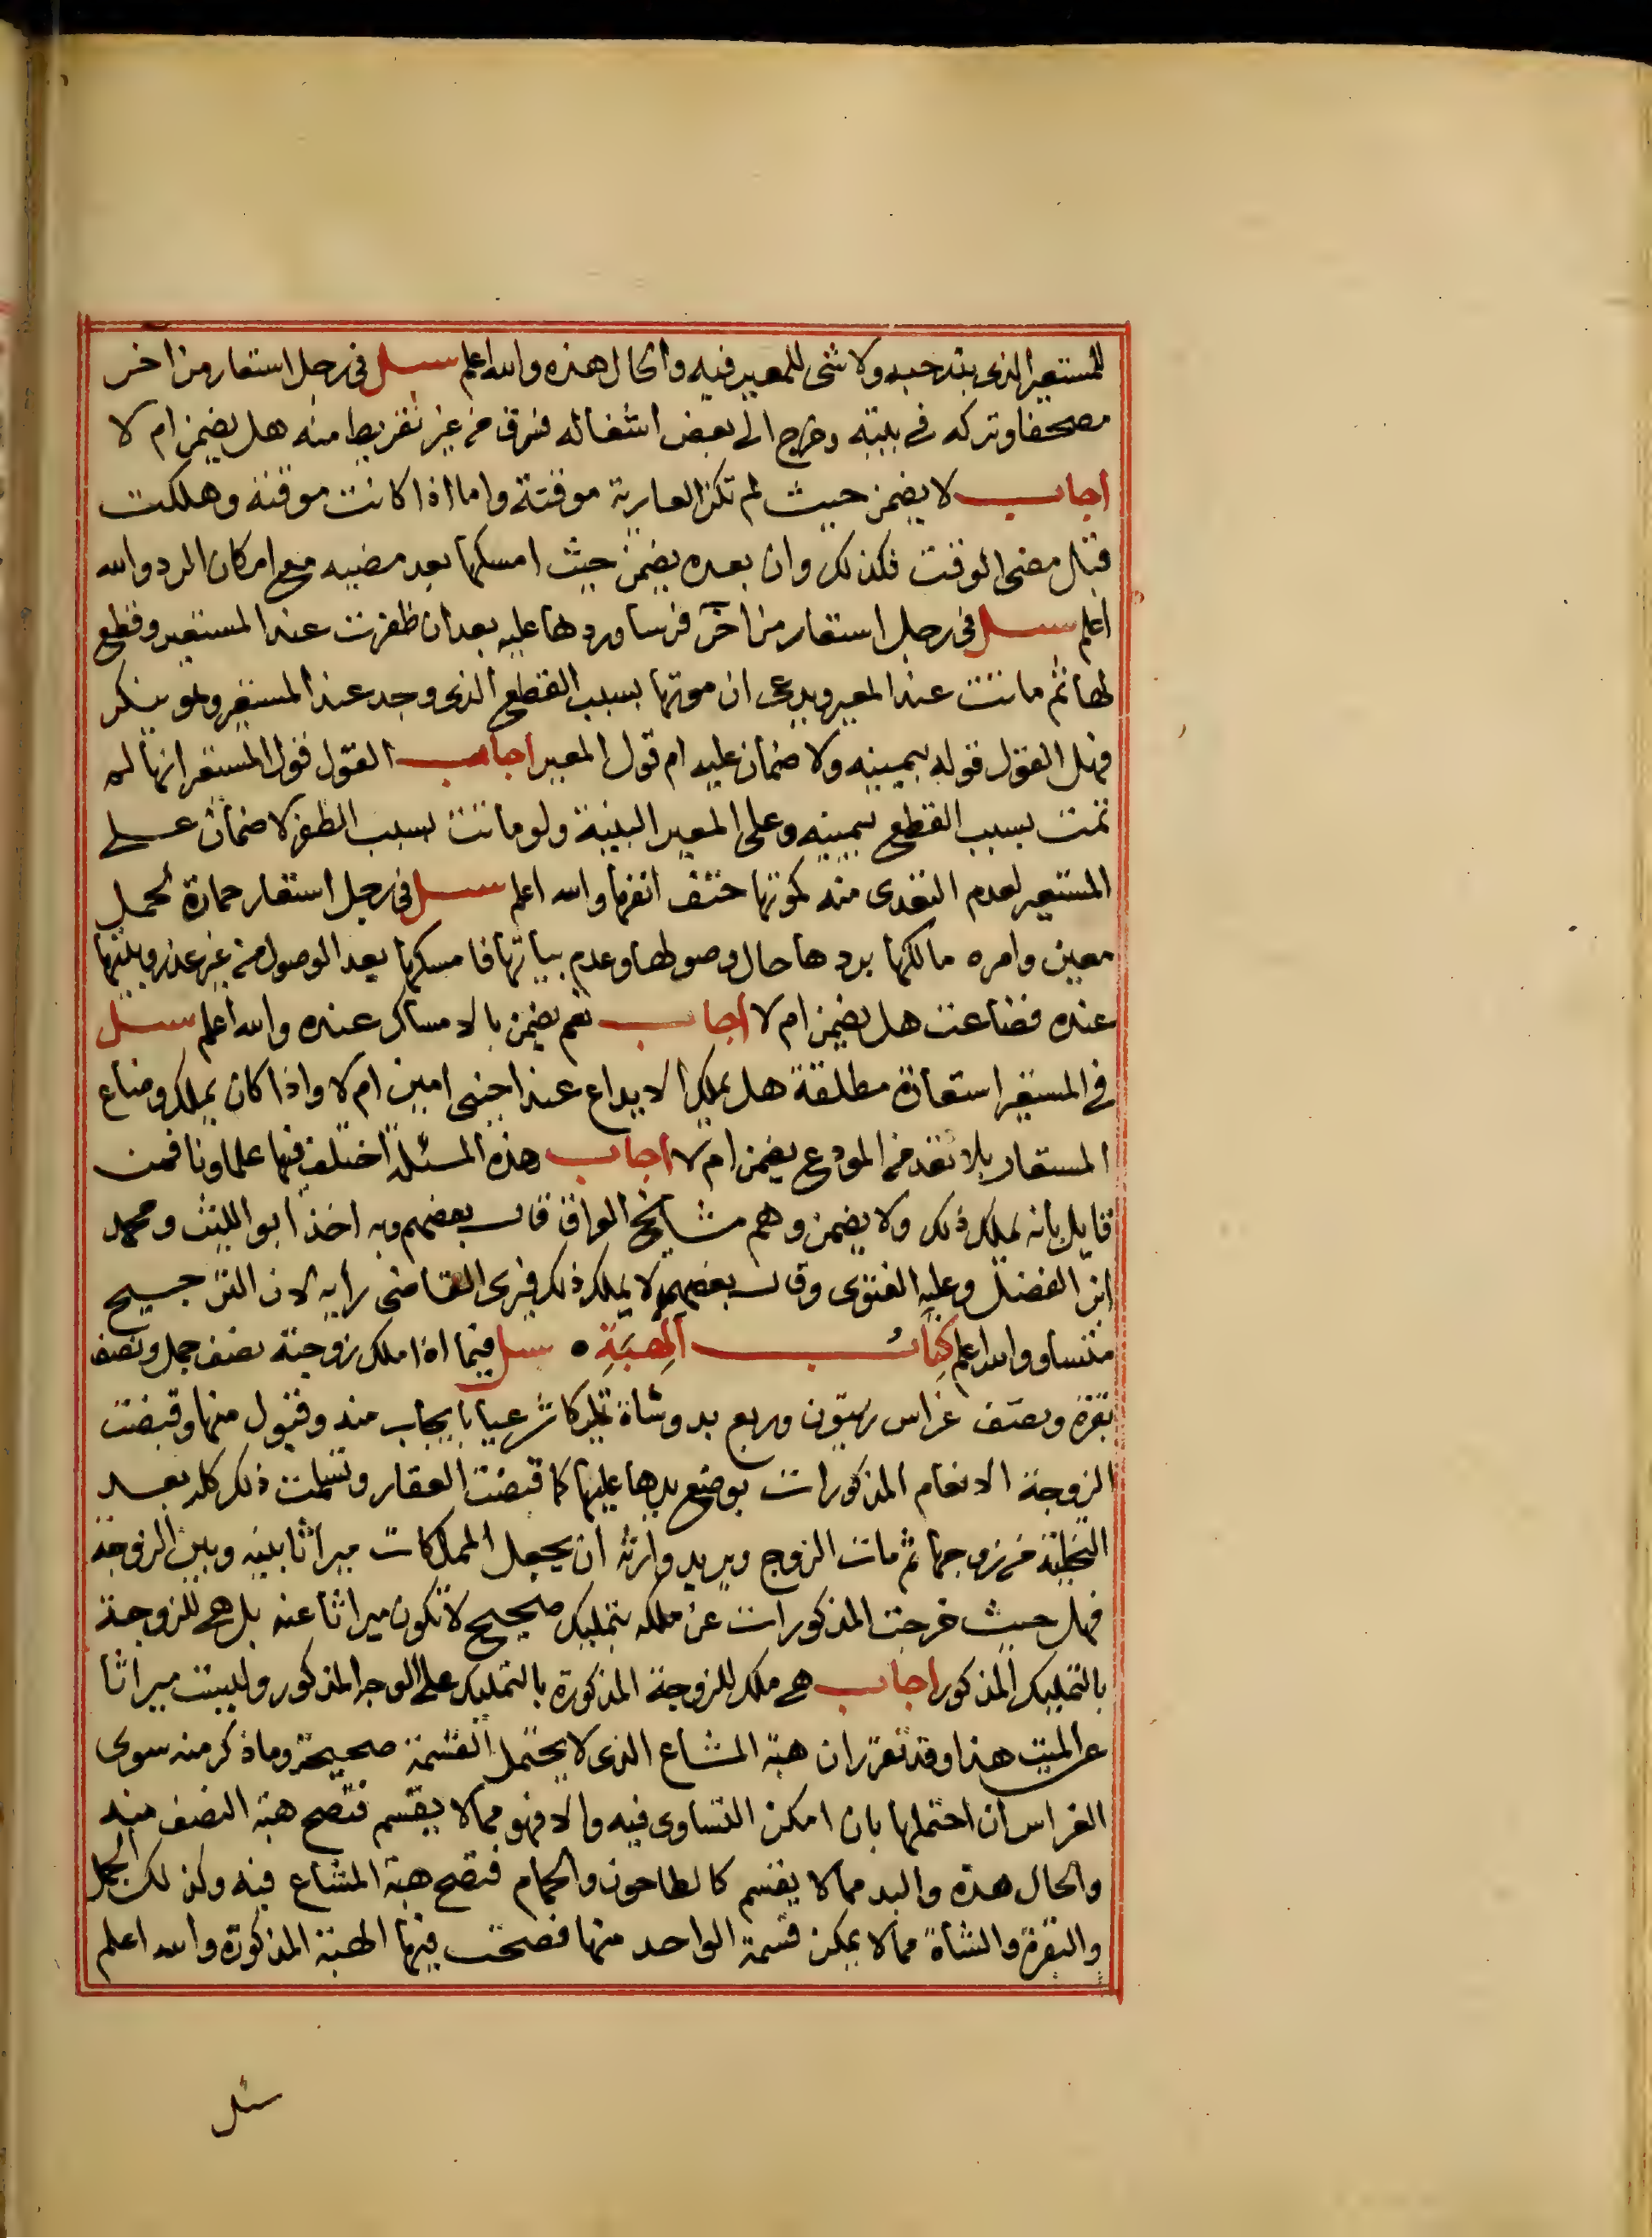 للمستعير الذي بذر حبه ولا شى للمعير فيه والحال هذه والله اعلم سئل في رجل استعار من اخر
مصحفا وتركه في بيته وخرج الى بعض اشغاله فسرق من غير تفريط منه هل يضمن ام لا
اجاب لا يضمن حيث لم تكن العارية موقتة واما اذا كانت موقتة وهلكت
قبل مضى الوقت فكذلك وان بعده يضمن حيث امسكها بعد مضيه مع امكان الرد والله
اعلم سئل في رجل استعار من اخر فرسا وردها عليه بعد ان ظفرت عند المستعير وقطع
لها ثم ماتت عند المعير ويدعى ان موتها بسبب القطع الذي وجد عند المستعير وهو ينكر
فهل القول قوله بيمينه ولا ضمان عليه ام قول المعير اجاب القول قول المستعير انها لم
تمت بسبب القطع بيمينه وعلى المعير البينة ولو ماتت بسبب الظفر لا ضمان على
المستعير لعدم التعدى منه كموتها حتف انفها والله اعلم سئل في رجل استعار حمارة لحمل
معين وامره مالكها بردها حال وصولها وعدم بياتها فامسكها بعد الوصول من غير عذر وبيتها
عنده فضاعت هل يضمن ام لا اجاب نعم يضمن بالامساك عنده والله اعلم سئل
في المستعير استعارة مطلقة هل يملك الايداع عند اجنبى امين ام لا واذا كان يملك وضاع
المستعار بلا تعد من المودع يضمن ام لا اجاب هذه المسئلة اختلف فيها علماونا فمن
قايل بانه يملك ذلك ولا يضمن وهم مشايخ العراق قال بعضهم وبه اخذ ابو الليث ومحمد
ابن الفضل وعليه الفتوى وقال بعضهم لا يملك ذلك فيرى القاضى رايه لان الترجيح
متساو والله اعلم كتاب الهبة ه سئل فيما اذا ملك زوجته نصف جمل ونصف
بقرة ونصف غراس زيتون وربع بد وشاة تمليكا شرعيا بايجاب منه وقبول منها وقبضت
الزوجة الانعام المذكورات بوضع يدها عليها كما قبضت العقار وتسلمت ذلك كله بعد
التخلية من زوجها ثم مات الزوج ويريد وارثه ان يجعل المملكات ميراثا بينه وبين الزوجة
فهل حيث خرجت المذكورات عن ملكه بتمليك صحيح لا تكون ميراثا عنه بل هي للزوجة
بالتمليك المذكور اجاب هي ملك للزوجة المذكورة بالتمليك على الوجه المذكور وليست ميراثا
عن الميت هذا وقد تقرر ان هبة المشاع الذى لا يحتمل القسمة صحيحة وما ذكر منه سوى
الغراس ان احتملها بان امكن التساوى فيه والا فهو مما لا يقسم فتصح هبة النصف منه
والحال هذه والبد مما لا يقسم كالطاحون والحمام فتصح هبة المشاع فيه وكذلك الجمل
والبقرة والشاة مما لا يمكن قسمة الواحد منها فصحت فيها الهبة المذكورة والله اعلم
سئل